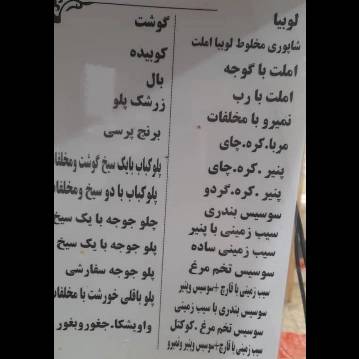 لوبیا
شاپوری مخلوط لوبیا املت
املت با گوجه
املت با رب
نمیرو با مخلفات
مربا.کره.چای
پنیر .کره.چای
پنیر .کره.گردو
سوسیس بندری
سیب زمینی با پنیر
سیب زمینی ساده
سوسیس تخم مرغ
سیب زمینی با قارچ+سوسیس وپنیر
سوسیس بندری با سیب زمینی
سوسیس تخم مرغ .کوکتل
سیب زمینی با قارچ+سوسیس وپنیر ونیمرو
گوشت
کوبیده
بال
زرشک پلو
برنج پرسی
پلوکباب بایک سیخ گوشت ومخلفا
پلوکباب با دو سیخ ومخلفا
چلو جوجه با یک سیخ
پلو جوجه با یک سیخ
پلو جوجه سفارشی
پلو باقلی خورشت با مخلفا
واویشکا.جغوروبغور